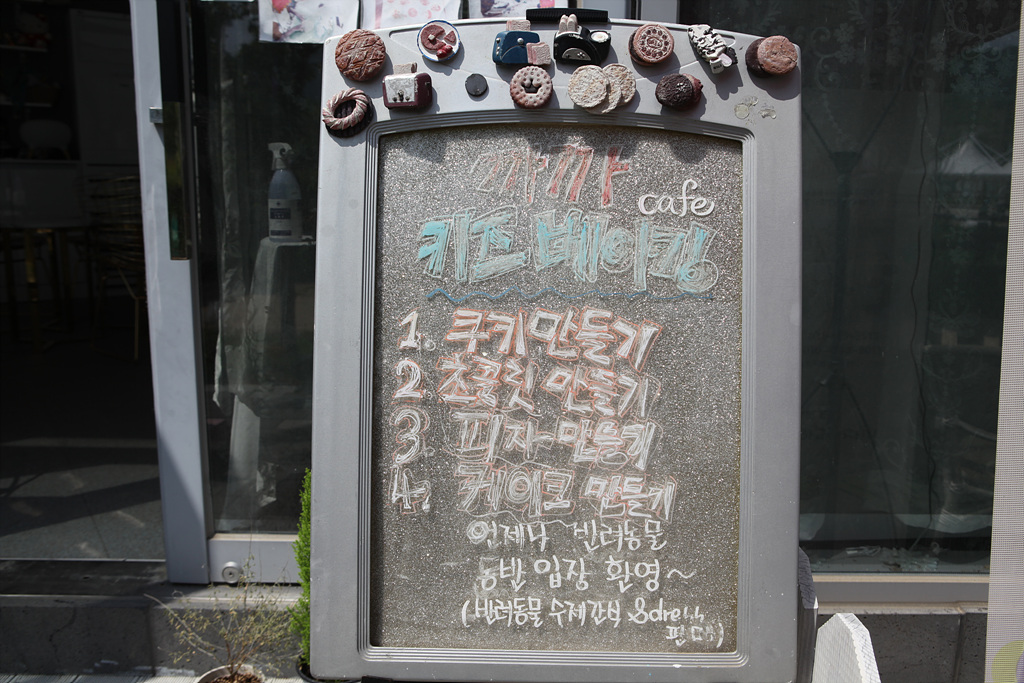 까까
cafe
키즈 베이킹
1. 쿠키 만들기
2. 초콜릿 만들기
3. 피자 만들기
4. 케이크 만들기
언제나 반려동물
동반 입장 환영~
(반려동물 수제간식 & dress
판매)